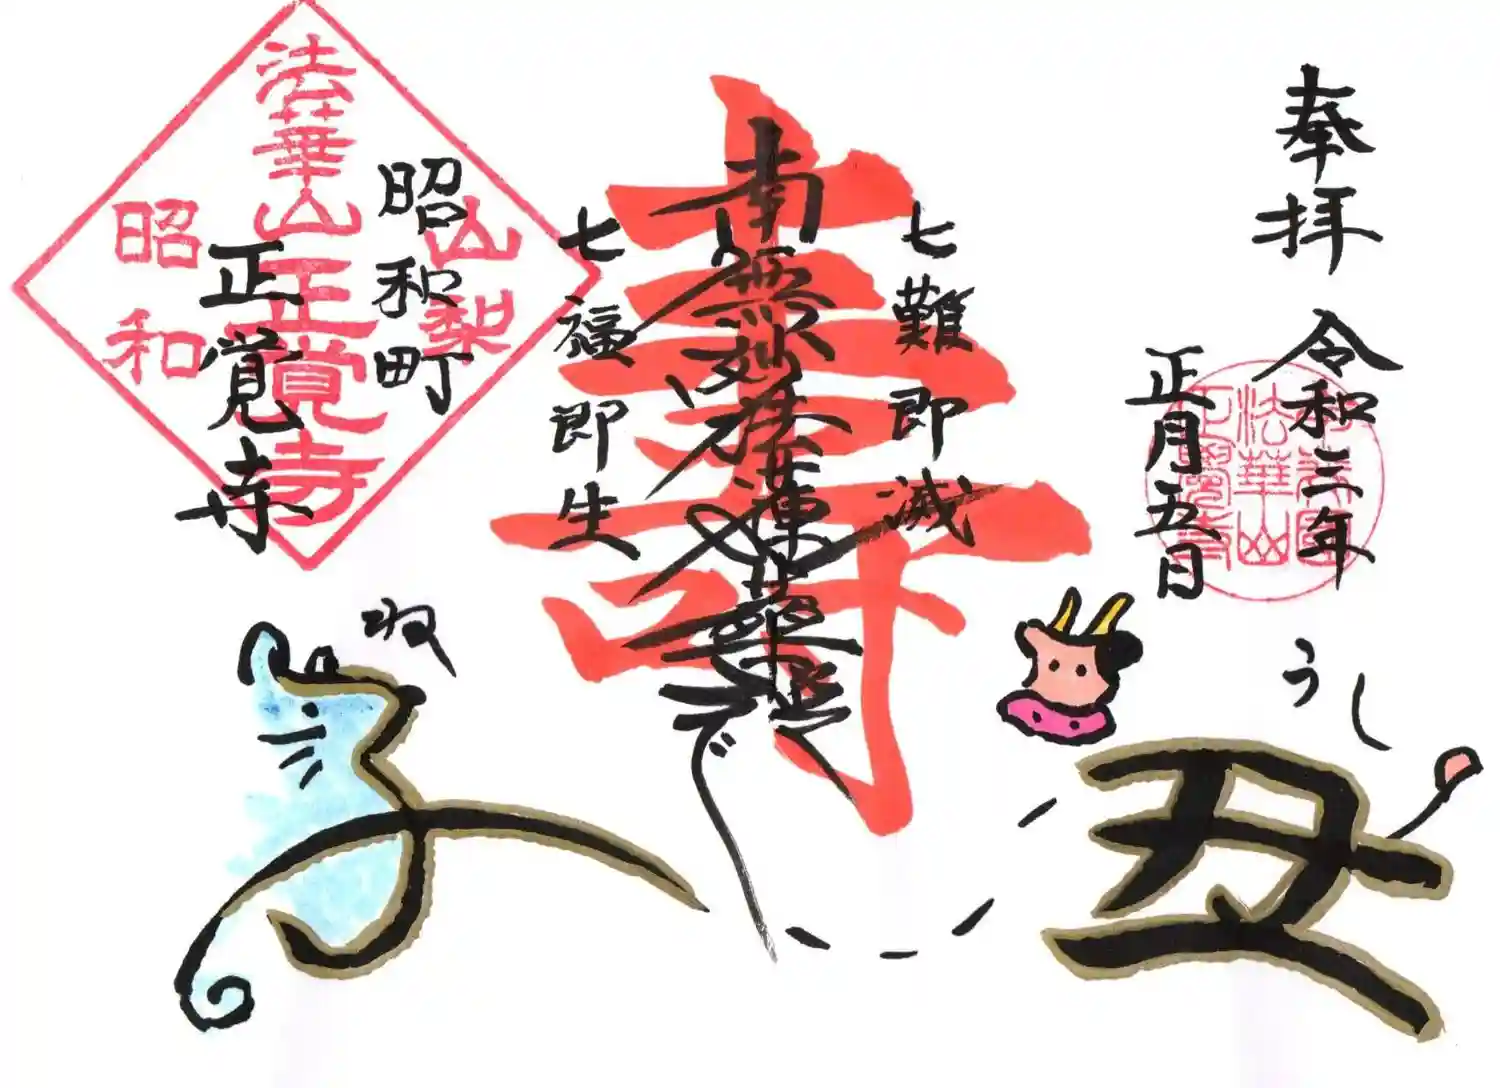 奉拝
令和三年
正月五日
七難即滅
南無妙法蓮華経
七福即生
昭和町
正覚寺
山梨
法華山正覚寺
昭和
法華山
うし
丑
ね
子